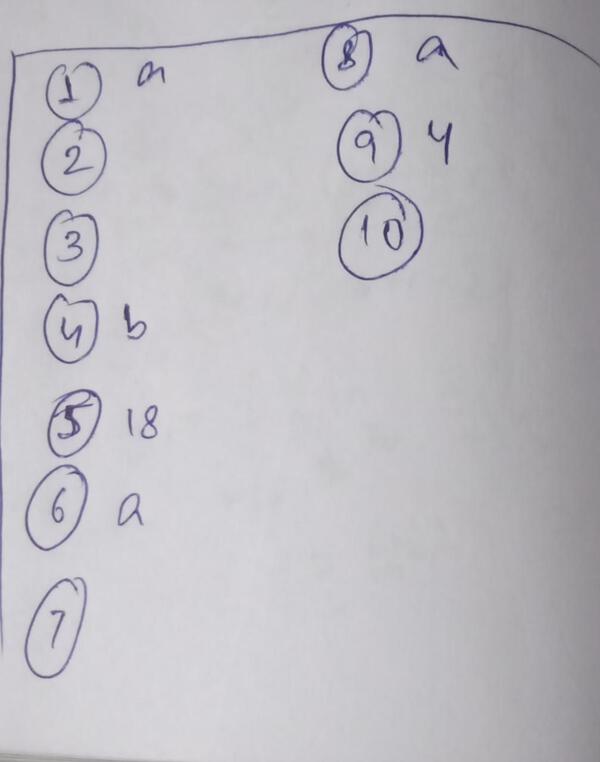 1 a
2
3
4 b
5 18
6 a
7
8 a
9 4
10